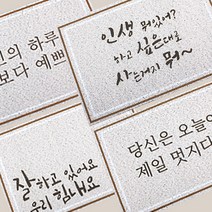 신의 하루
보다 예쁘
인생 뭐있어?
하고 싶은대로
사는거지 뭐~
잘하고 있어요
우리 힘내요
당신은 오늘
제일 멋지